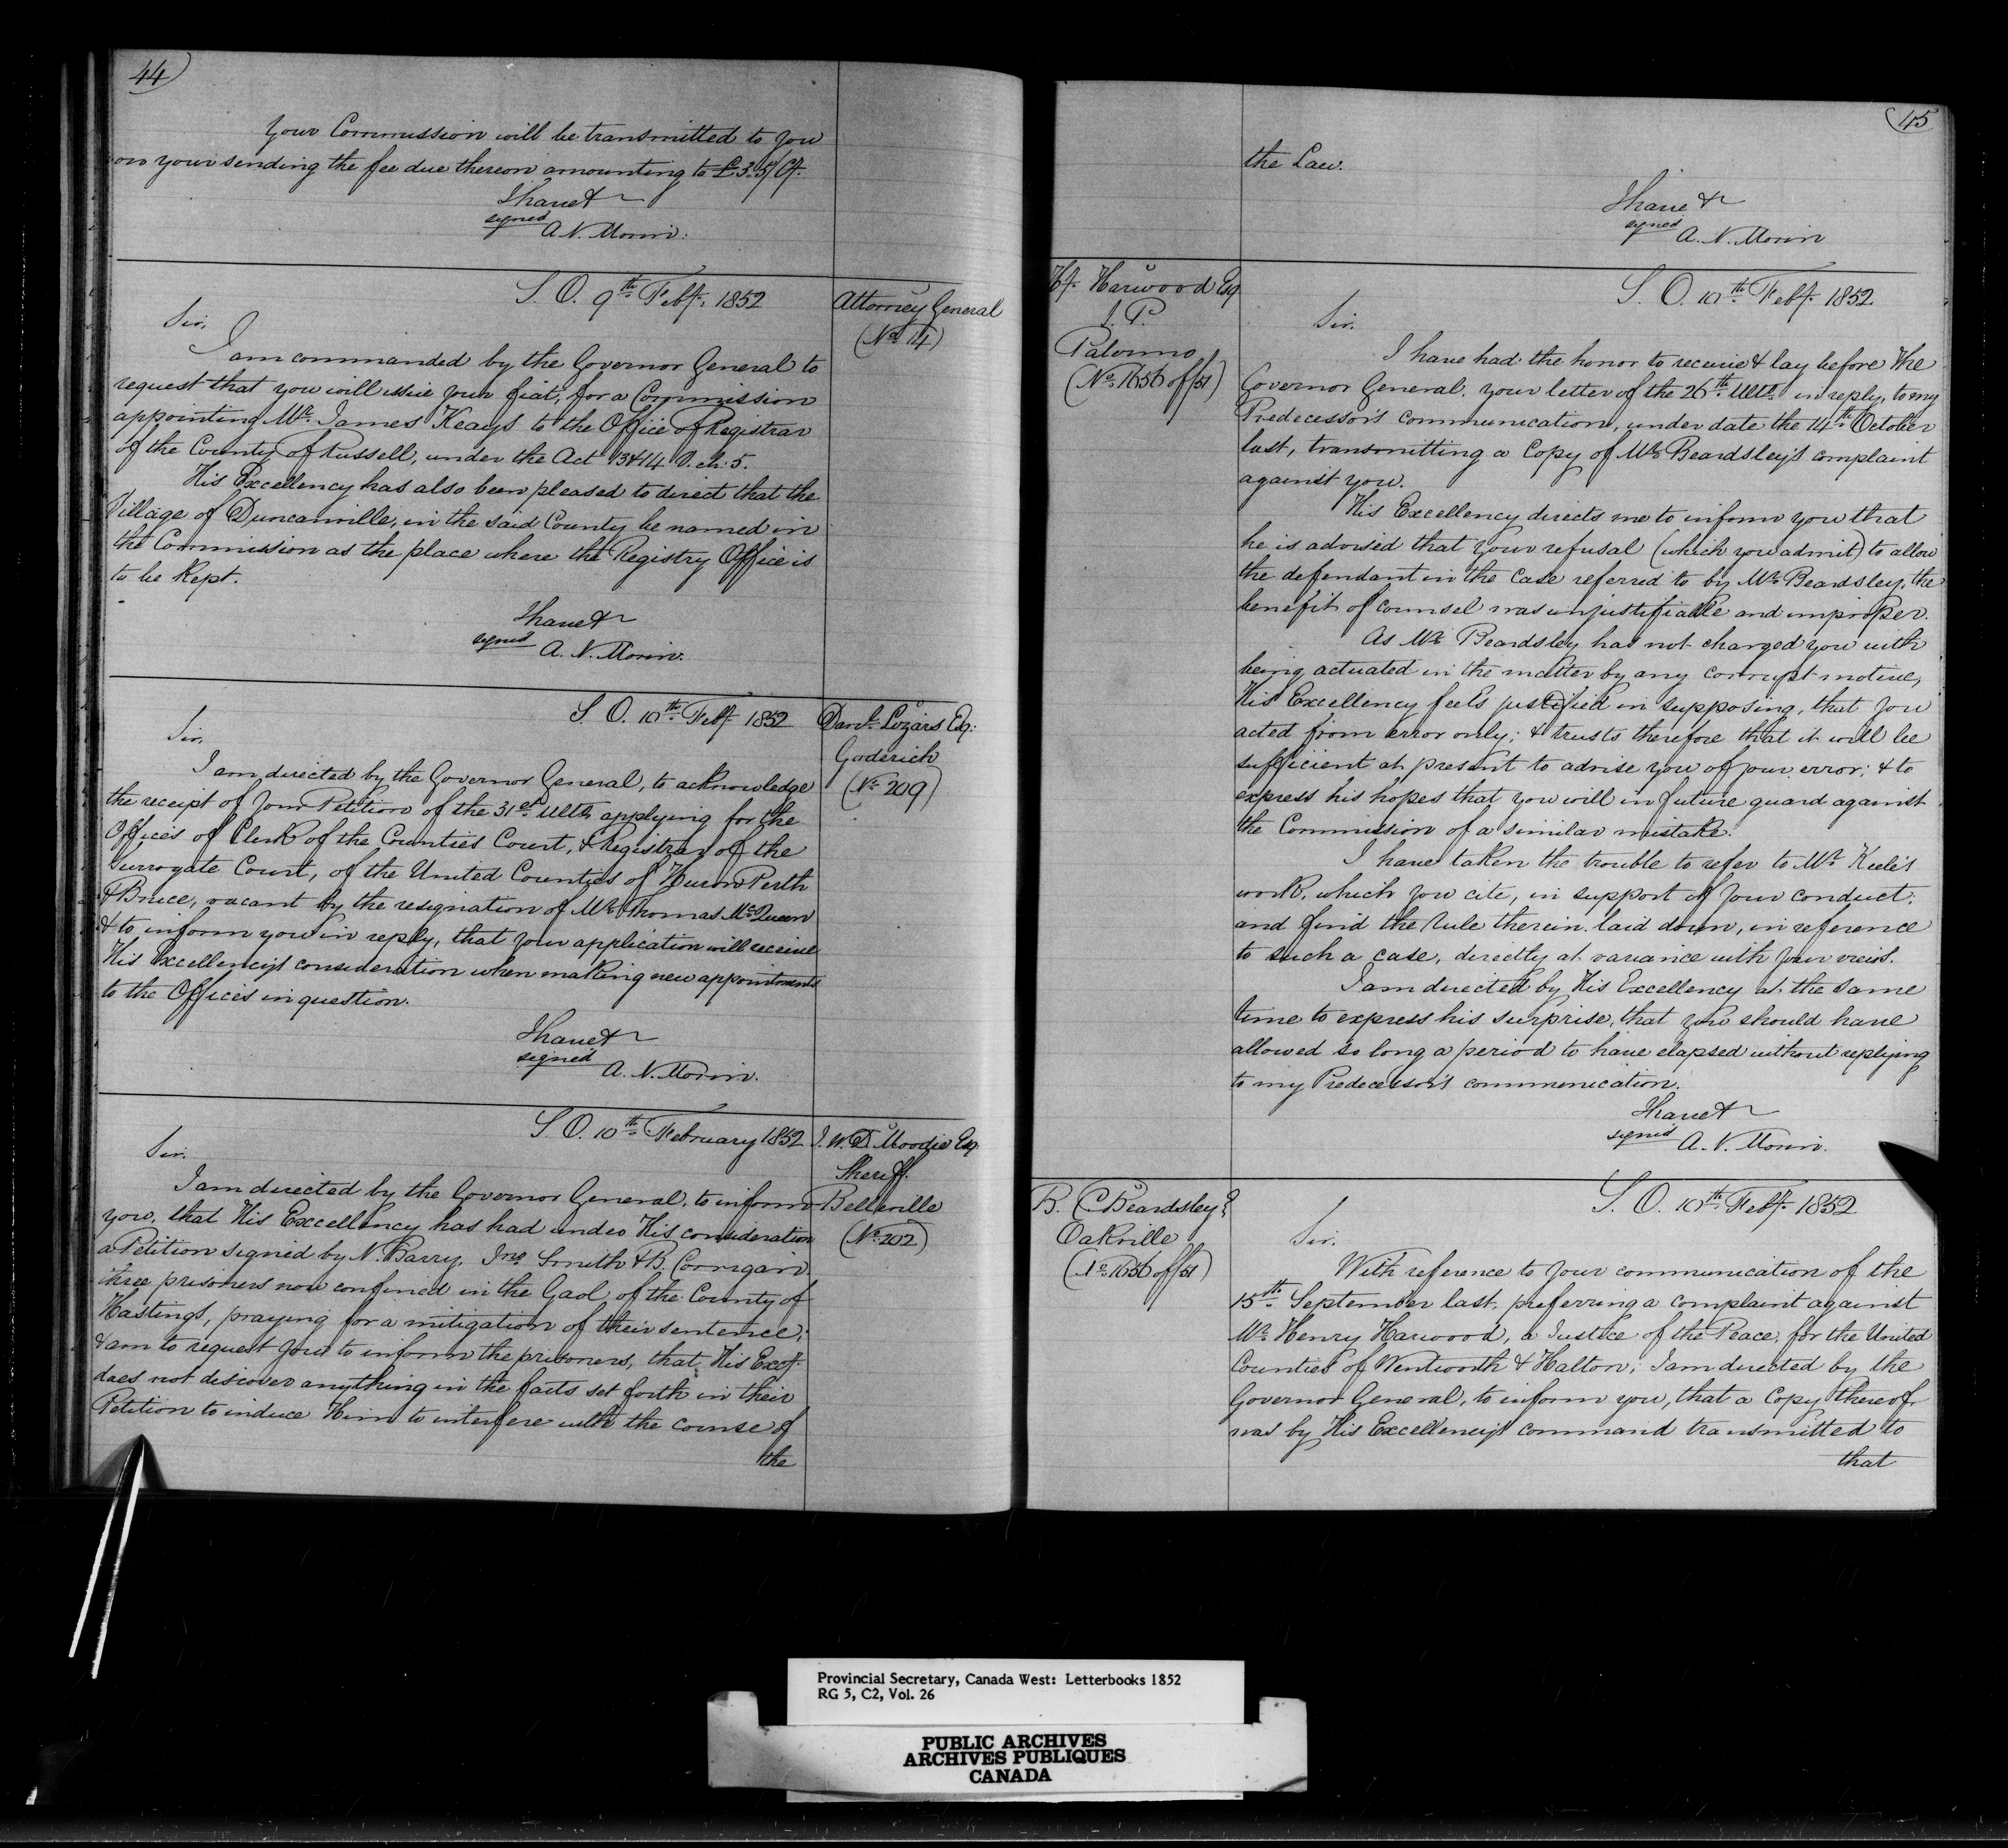 44
Your Commission will be transmitted to you
on your sending the fee due thereon amounting to £3.5/Cy.
I have &
signed
A. N. Morin.
S. O. 9th Feby. 1852
Attorney General
(No 14)
Sir,
I am commanded by the Governor General to
request that you will issue your fiat, for a Commission
appointing Mr. James Keays to the Office of Registrar
of the County of Russell, under the Act 13&14 V. ch: 5.
His Excellency has also been pleased to direct that the
Village of Duncanville, in the said County be named in
the Commission as the place where the Registry Office is
to be Kept.
I have &
signed
A. N. Morin.
S. O. 10th Feby. 1852
Danl. Lizars Esq:
Goderich
(No 209)
Sir,
I am directed by the Governor General, to acknowledge
the receipt of your Petition of the 31st Ulto. applying for the
Offices of Clerk of the Counties Court, & Registrar of the
Surrogate Court, of the United Counties of Huron Perth
& Bruce, vacant by the resignation of Mr. Thomas McQueen
& to inform you in reply, that your application will receive
His Excellency's consideration when making new appointments
to the Offices in question.
I have &
signed
A. N. Morin.
S. O. 10th February 1852
J. W. D. Moodie Esq.
Sheriff.
Belleville
(No 202)
Sir,
I am directed by the Governor General, to inform
you, that His Excellency has had under His consideration
a Petition signed by N. Barry, Jno. Smith & B. Corrigan
three prisoners now confined in the Gaol of the County of
Hastings, praying for a mitigation of their sentence;
& am to request you to inform the prisoners, that His Excy.
does not discover anything in the facts set forth in their
Petition to induce Him to interfere with the course of
the
45
the Law.
I have &
signed
A. N. Morin
Hy. Harwood Esq
J. P.
Palermo
(No. 1656 of/51)
S. O. 10th Feby. 1852
Sir,
I have had the honor to receive & lay before the
Governor General, your letter of the 26th Ulto. in reply, to my
Predecessor's communication, under date the 14th October
last, transmitting a Copy of Mr. Beardsley's complaint
against you.
His Excellency directs me to inform you that
he is advised that your refusal (which you admit) to allow
the defendant in the case referred to by Mr. Beardsley, the
benefit of counsel was unjustifiable and improper.
As Mr. Beardsley has not charged you with
being actuated in the matter by any corrupt motive,
His Excellency feels justified in supposing, that you
acted from error only; & trusts therefore that it will be
sufficient at present to advise you of your error; & to
express his hopes that you will in future guard against
the Commission of a similar mistake.
I have taken the trouble to refer to Mr. Keele's
work, which you cite, in support of your conduct,
and find the rule therein laid down, in reference
to such a case, directly at variance with your views.
I am directed by His Excellency at the same
time to express his surprise, that you should have
allowed so long a period to have elapsed without replying
to my Predecessor's communication.
I have &
signed
A. N. Morin.
B. C. Beardsley
Oakville
(No. 1656 of/51)
S. O. 10th Feby. 1852
Sir,
With reference to your communication of the
15th September last, preferring a complaint against
Mr. Henry Harwood, a Justice of the Peace, for the United
Counties of Wentworth & Halton; I am directed by the
Governor General, to inform you, that a Copy thereof
was by His Excellency's command transmitted to
that
Provincial Secretary, Canada West: Letterbooks 1852
RG 5, C2, Vol. 26
PUBLIC ARCHIVES
ARCHIVES PUBLIQUES
CANADA